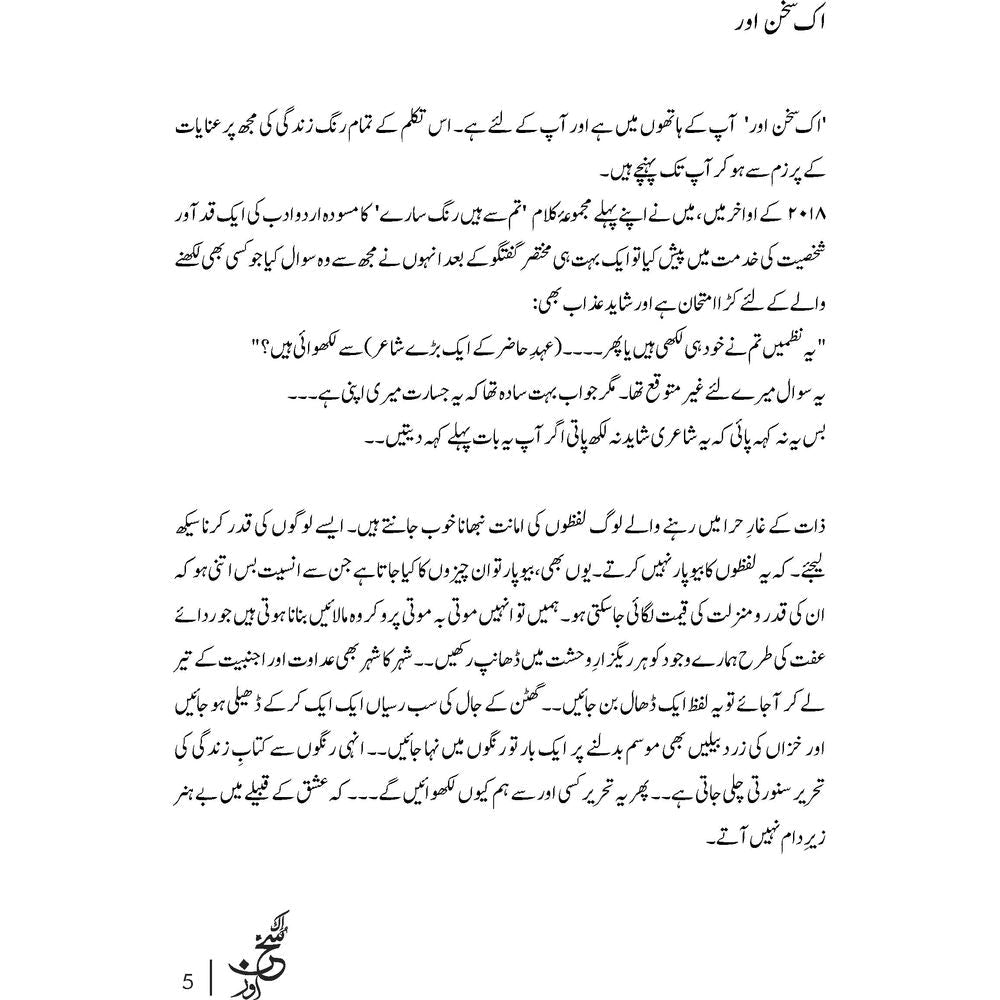 اک سخن اور
'اک سخن اور' آپ کے ہاتھوں میں ہے اور آپ کے لئے ہے۔ اس تکلم کے تمام رنگ زندگی کی مجھ پر عنایات
کے پرزم سے ہو کر آپ تک پہنچے ہیں۔
۲۰۱۸ کے اواخر میں، میں نے اپنے پہلے مجموعۂ کلام 'تم سے ہیں رنگ سارے' کا مسودہ اردو ادب کی ایک قد آور
شخصیت کی خدمت میں پیش کیا تو ایک بہت ہی مختصر گفتگو کے بعد انہوں نے مجھ سے وہ سوال کیا جو کسی بھی لکھنے
والے کے لئے کڑا امتحان ہے اور شاید عذاب بھی:
"یہ نظمیں تم نے خود ہی لکھی ہیں یا پھر۔۔۔۔(عہدِ حاضر کے ایک بڑے شاعر) سے لکھوائی ہیں؟"
یہ سوال میرے لئے غیر متوقع تھا۔ مگر جواب بہت سادہ تھا کہ یہ جسارت میری اپنی ہے۔۔۔
بس یہ نہ کہہ پائی کہ یہ شاعری شاید نہ لکھ پاتی اگر آپ یہ بات پہلے کہہ دیتیں۔۔
ذات کے غارِ حرا میں رہنے والے لوگ لفظوں کی امانت نبھانا خوب جانتے ہیں۔ ایسے لوگوں کی قدر کرنا سیکھ
لیجئے۔ کہ یہ لفظوں کا بیوپار نہیں کرتے۔ یوں بھی، بیوپار تو ان چیزوں کا کیا جاتا ہے جن سے انسیت بس اتنی ہو کہ
ان کی قدر و منزلت کی قیمت لگائی جا سکتی ہو۔ ہمیں تو انہیں موتی بہ موتی پرو کر وہ مالائیں بنانا ہوتی ہیں جو ردائے
عفت کی طرح ہمارے وجود کو ہر ریگزارِ وحشت میں ڈھانپ رکھیں۔۔ شہر کا شہر بھی عداوت اور اجنبیت کے تیر
لے کر آجائے تو یہ لفظ ایک ڈھال بن جائیں۔۔ گھٹن کے جال کی سب رسیاں ایک ایک کر کے ڈھیلی ہو جائیں
اور خزاں کی زرد بیلیں بھی موسم بدلنے پر ایک بار تو رنگوں میں نہا جائیں۔۔ انہی رنگوں سے کتابِ زندگی کی
تحریر سنورتی چلی جاتی ہے۔۔ پھر یہ تحریر کسی اور سے ہم کیوں لکھوائیں گے۔۔۔ کہ عشق کے قبیلے میں بے ہنر
زیرِ دام نہیں آتے۔
اک سخن اور
5